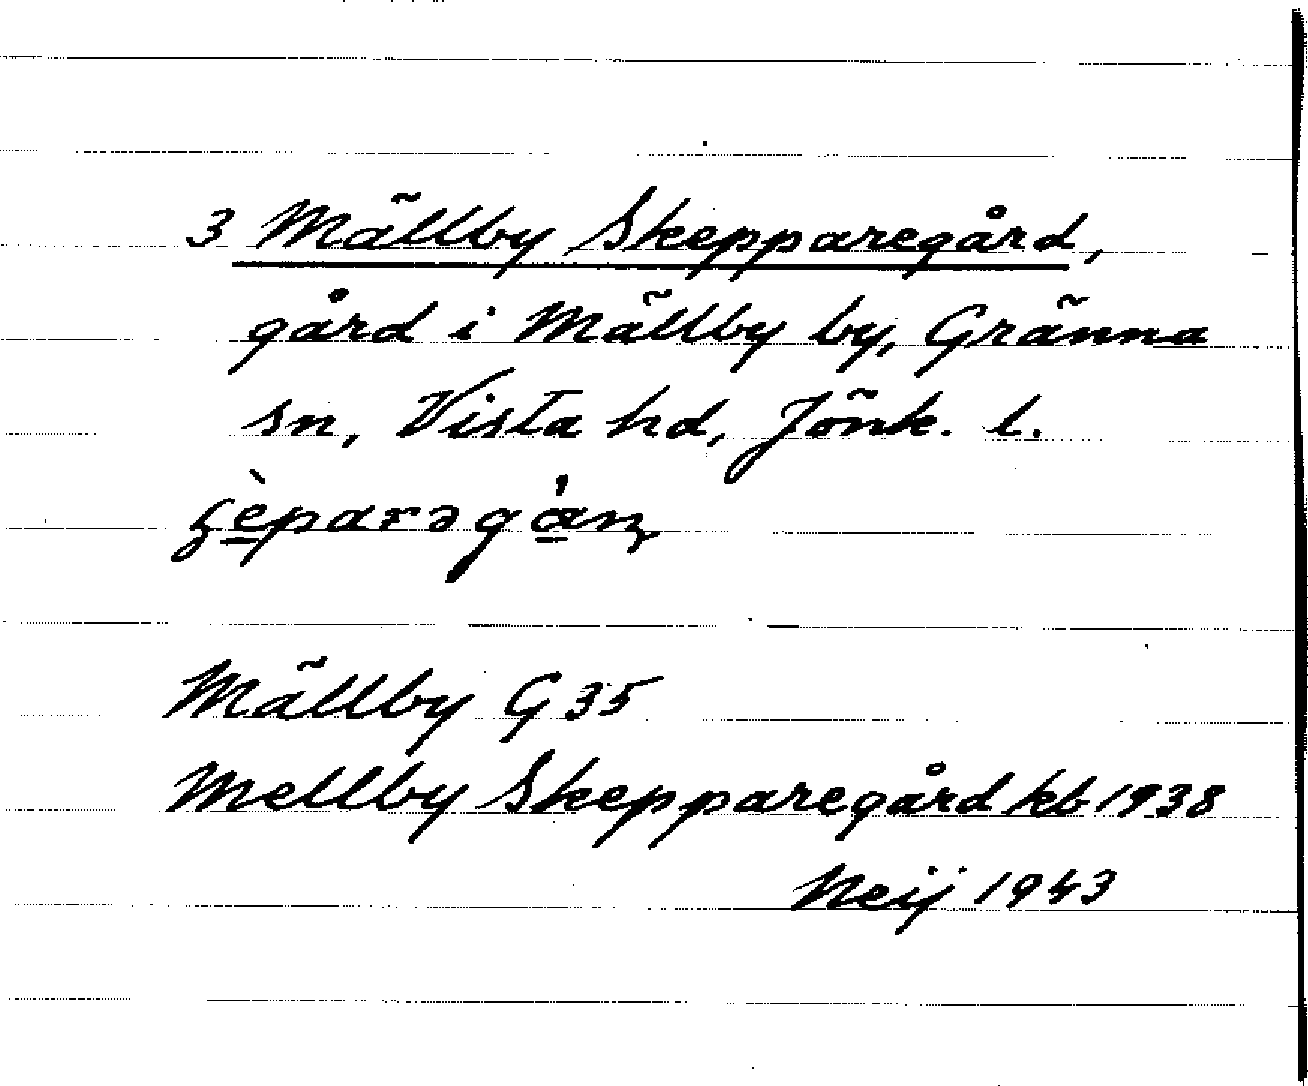 3 Mällby Skepparegård,
gård i Mällby by, Gränna
sn, Vista hd, Jönk. l.
Mällby G 35
Mellby Skepparegård kb 1938
Neij 1943